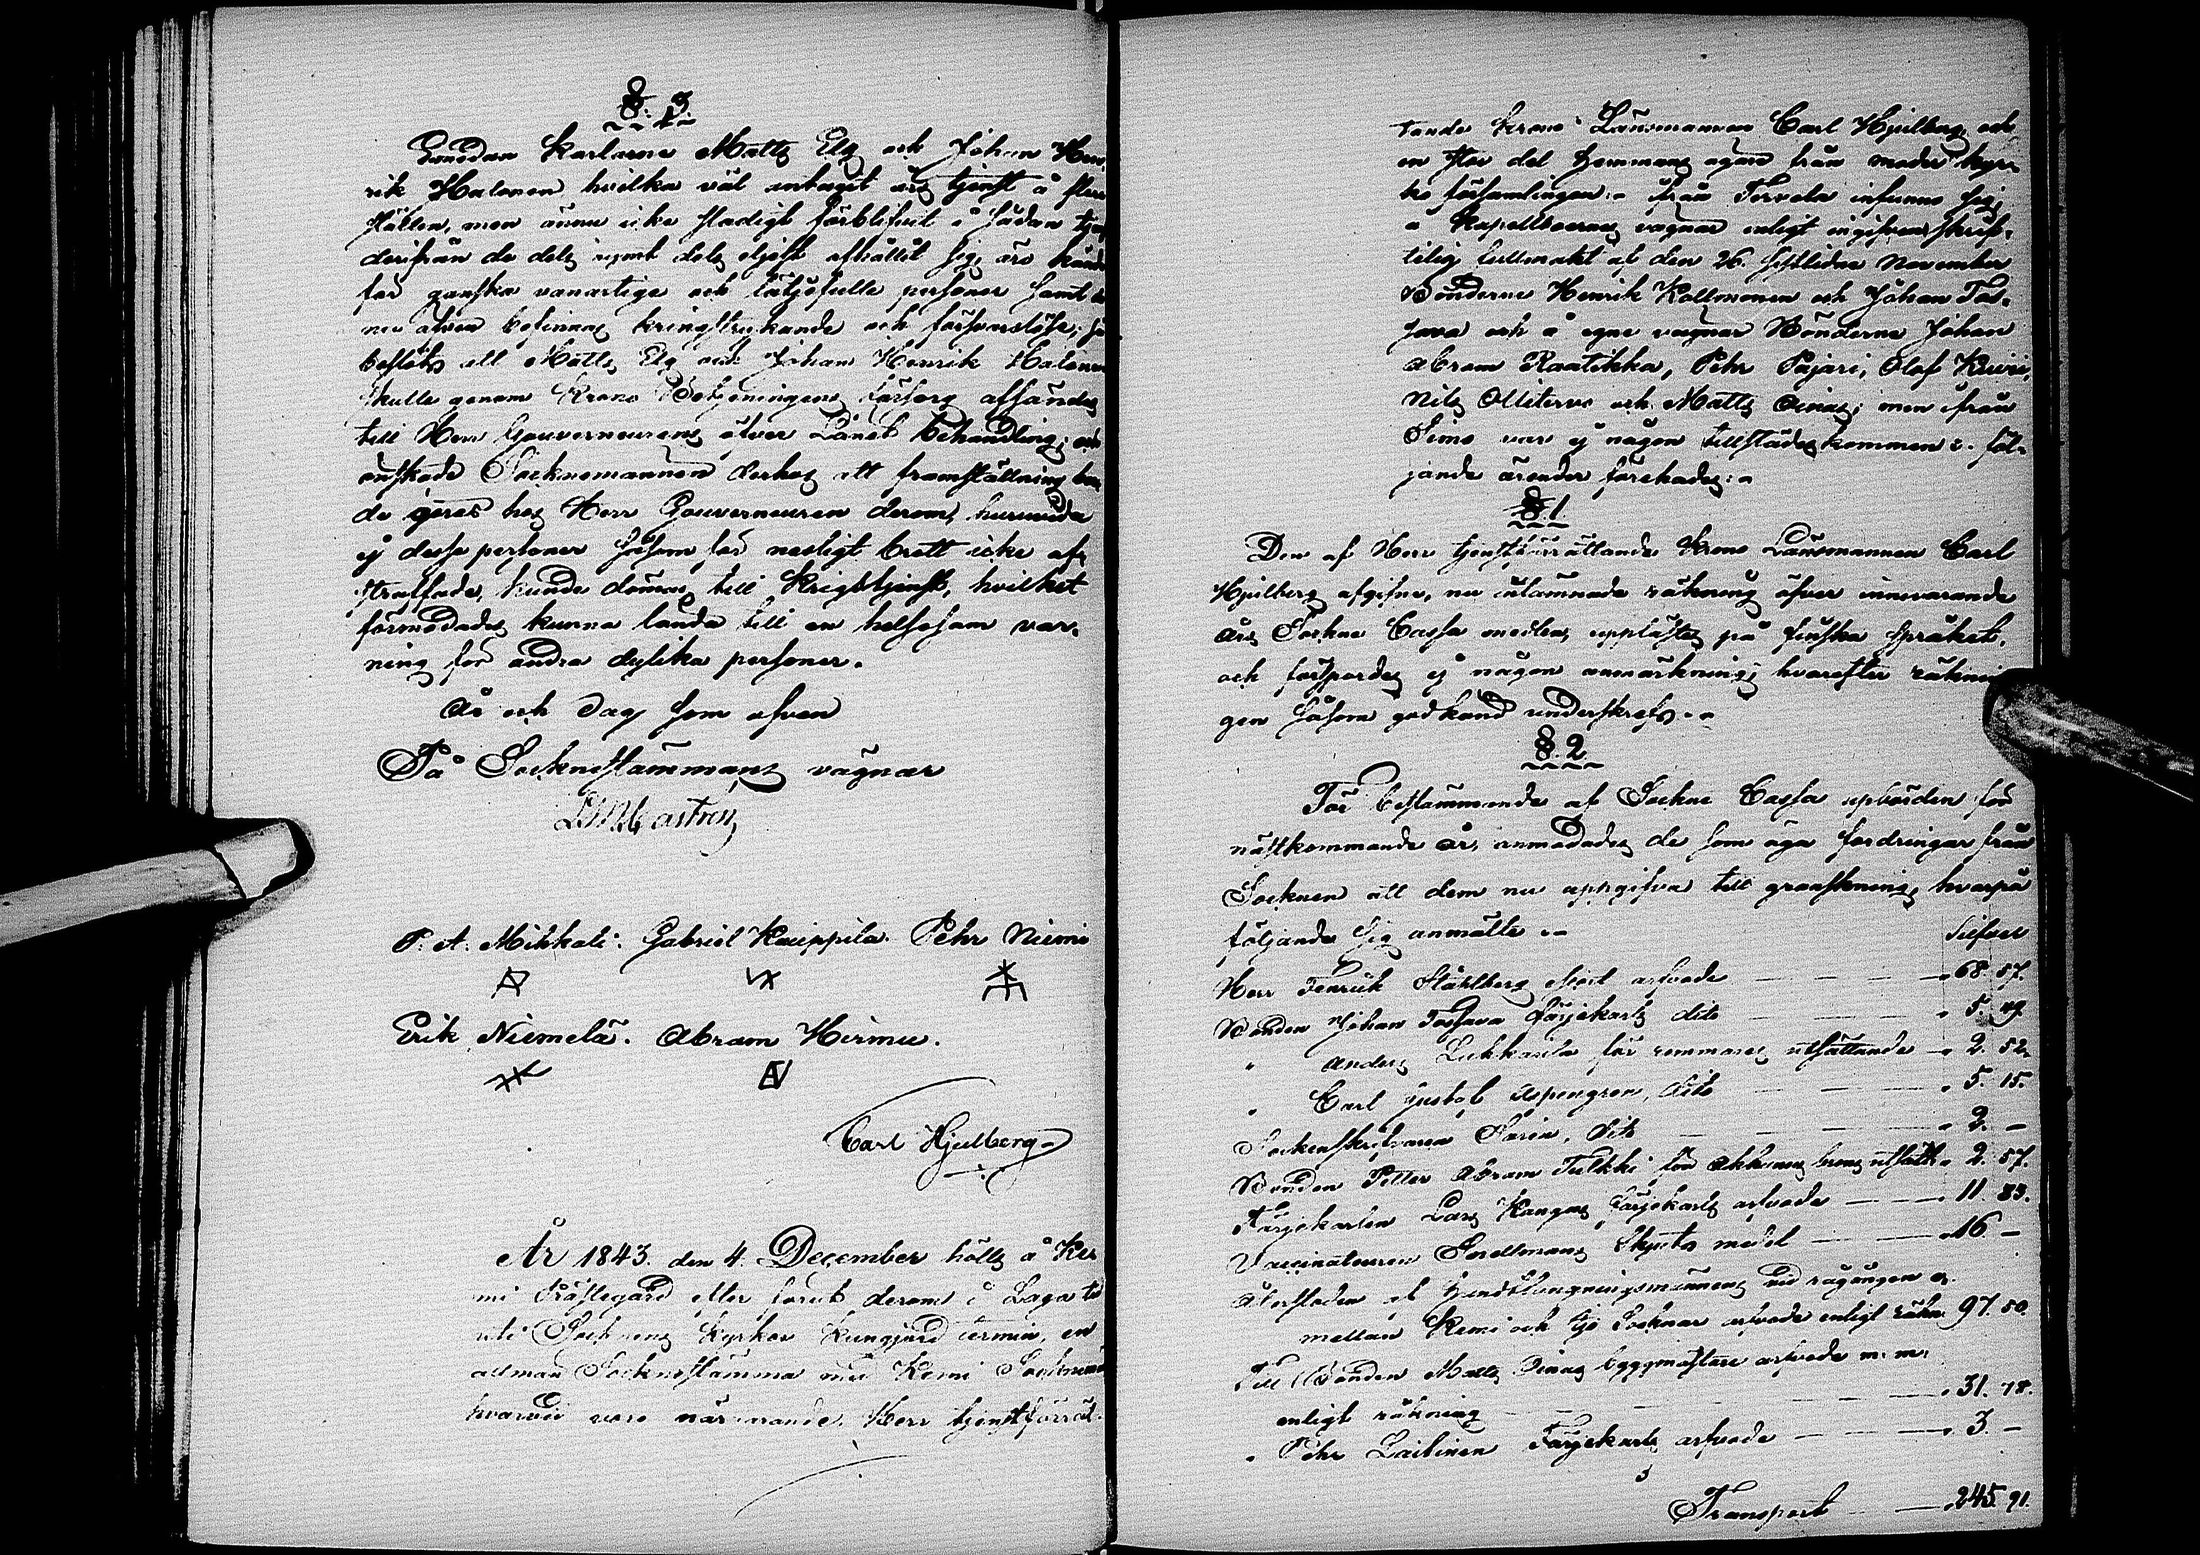 §. 3.
Emedan Karlarne Matts Elg och Johan Hen
rik Halonen hvilka väl antagit årstjenst å flere
ställen, men ännu icke stadigt förblifvit i sådan tjenst
derifrån de dels rymt dels eljest afhållit sig, äro kände
för ganska vanartige och lätjefulle personer samt
nu äfven befinnas kringstrykande och försvarslöse; så
beslöts att Matts Elg och Johan Henrik Halonen
skulle genom Krono Betjeningens försorg afsändas
till Herr Gouverneurens öfver Länet behandling; och
önskade Socknemännen derhos att framställning bor
de göras hos Herr Gouverneuren derom, huruvida
ej desse personer såsom för nesligt brott icke af-
straffade, kunde dömas till Krigstjenst, hvilket
förmodades kunna lända till en helsosam var-
ning för andra dylika personer.
År och Dag som ofvan
På Socknestämmans vägnar
Castrén
P. A. Mikkoli. Gabriel Kauppila. Pehr Niemi
Erik Niemelä. Abram Hirmu.
Carl Hjulberg
År 1843. den 4. December hölls å Ke
mi Prästegård efter förut derom i Laga tid
uti Socknens Kyrkor kungjord termin, en
allmän Socknestämma med Kemi Sockneman
hvarvid voro närvarande, Herr tjenstförrät-
tande Krono Länsmannen Carl Hjulberg och
en stor del Hemmans egare från moder kyr-
ko församlingen:- från Tervola infunno sig
å Kapellboernes vägnar enligt ingifven skrif-
telig fullmakt af den 26. sistlidne November
Bönderne Henrik Kallmonen och Johan Tos-
sava och å egne vägnar Bönderne Johan
Abram Raatikka, Pehr Pajari, Olof Kiviri,
Nils Ollitervo och Matts Oinas; men ifrån
Simo var ej någon tillstädeskommen:- föl-
jande ärender förehades:-
§. 1
Den af Herr tjenstförrättande Krono Länsmannen Carl
Hjulberg afgifne, nu inlämnade räkning öfver innevarande
års Sockne Cassa medlen, upplästes på finska språket,
och förspordes ej någon anmärkning; hvarefter räknin
gen såsom godkänd underskrefs.-
§. 2
För bestämmande af Sockne Cassa upbörden för
nästkommande år, anmodades de som äga fordringar från
Socknen att dem nu uppgifva till granskning, hvarpå
följande sig anmälte:-
Silfver
Herr Fenrick Ståhlberg arfvode — 68. 57.
Bonden Johan Tossava färjekarls dito — 5. 49
" Anders Lukkarila för remmares utsättande — 2. 52
" Carl Gustaf Aspengren, dito — 5. 15.
Sockenskrifvaren Sarin, dito — 2. —
Bonden Petter Abram Tulkki för utsätt. 2. 57.
Färjekarlen Lars Kangas färjekarls arfvode — 11. 83.
Vaccinateuren Sordlmans Skjuts medel — 16 —
Ålerstaden af Handtlangningsmännens vid rågången e.
mellan Kemi och Ijo Socknar arfvode enligt räkn. 97. 50.
Till Bonden Matts Oinas byggmästare arfvode m. m.
enligt räkning — 31. 78.
" Pehr Laitinen Färjekarls arfvode — 3 —
Transport — 245. 91.